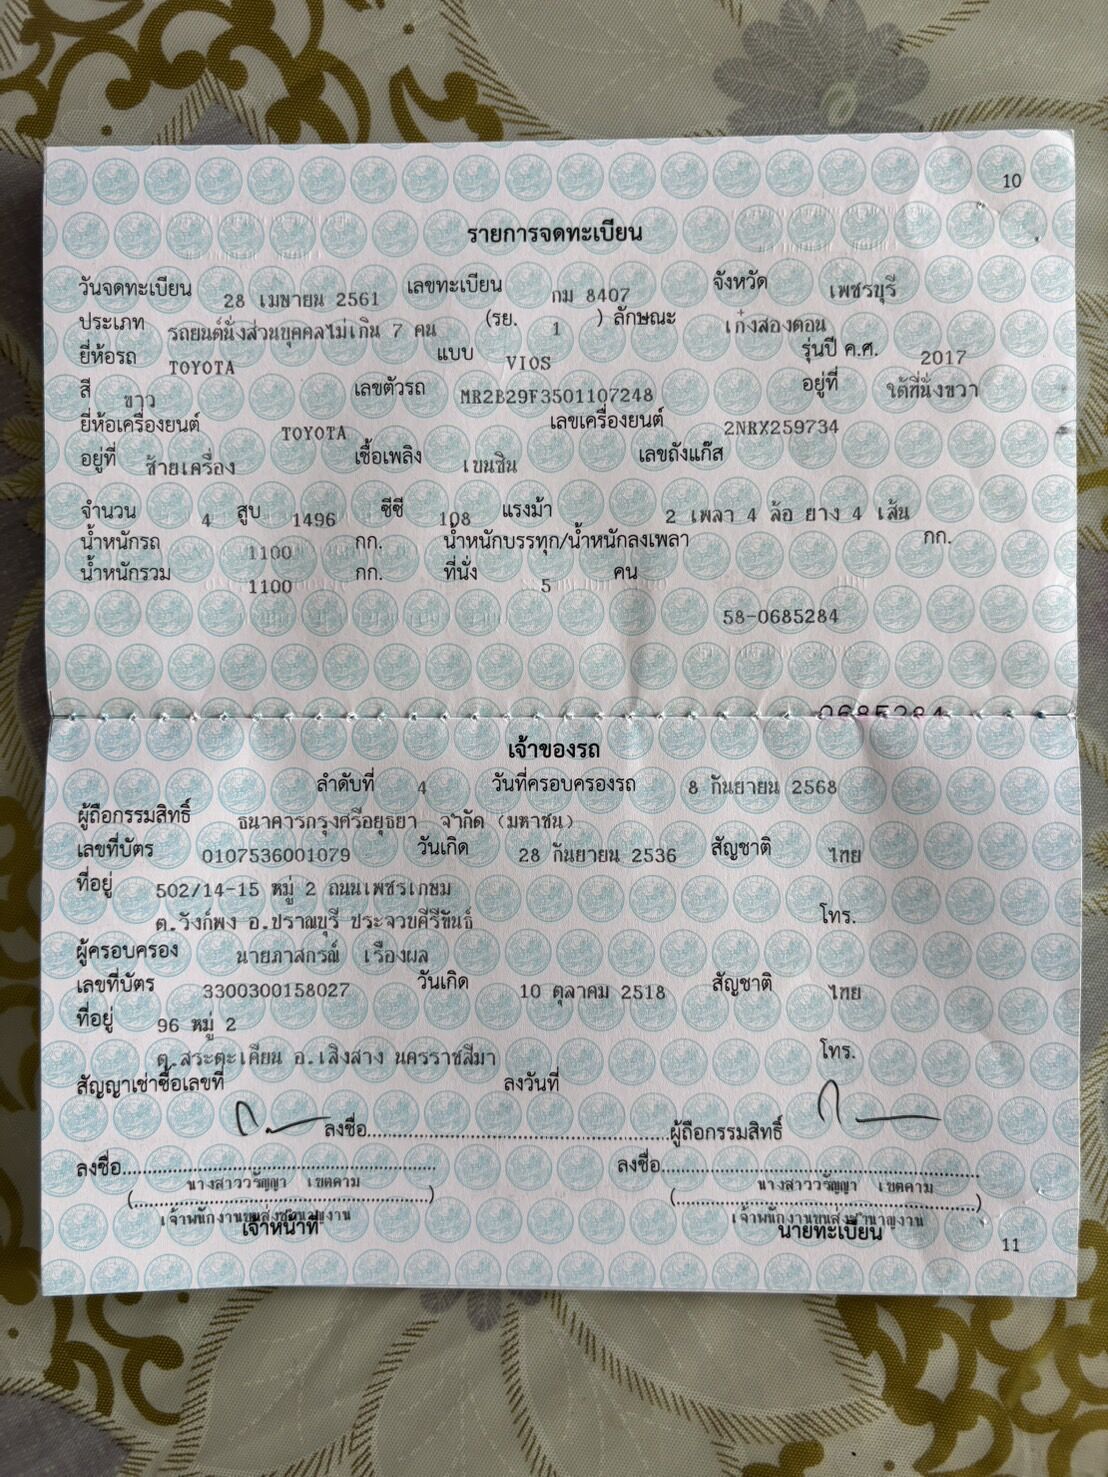 10
รายการจดทะเบียน
วันจดทะเบียน 28 เมษายน 2561 เลขทะเบียน กม 8407 จังหวัด เพชรบุรี
ประเภท รถยนต์นั่งส่วนบุคคลไม่เกิน 7 คน (รย. 1 ) ลักษณะ เก๋งสองตอน
ยี่ห้อรถ TOYOTA แบบ VIOS รุ่นปี ค.ศ. 2017
สี ขาว เลขตัวรถ MR2B29F3501107248 อยู่ที่ ใต้ที่นั่งขวา
ยี่ห้อเครื่องยนต์ TOYOTA เลขเครื่องยนต์ 2NRX259734
อยู่ที่ ซ้ายเครื่อง เชื้อเพลิง เบนซิน เลขถังแก๊ส
จำนวน 4 สูบ 1496 ซีซี 108 แรงม้า 2 เพลา 4 ล้อ ยาง 4 เส้น
น้ำหนักรถ 1100 กก. น้ำหนักบรรทุก/น้ำหนักลงเพลา กก.
น้ำหนักรวม 1100 กก. ที่นั่ง 5 คน
58-0685284
0685284
เจ้าของรถ
ลำดับที่ 4 วันที่ครอบครองรถ 8 กันยายน 2568
ผู้ถือกรรมสิทธิ์ ธนาคารกรุงศรีอยุธยา จำกัด (มหาชน)
เลขที่บัตร 0107536001079 วันเกิด 28 กันยายน 2536 สัญชาติ ไทย
ที่อยู่ 502/14-15 หมู่ 2 ถนนเพชรเกษม
ต.วังก์พง อ.ปราณบุรี ประจวบคีรีขันธ์ โทร.
ผู้ครอบครอง นายภาสกรณ์ เรืองผล
เลขที่บัตร 3300300158027 วันเกิด 10 ตุลาคม 2518 สัญชาติ ไทย
ที่อยู่ 96 หมู่ 2
ต.สระตะเคียน อ.เสิงสาง นครราชสีมา โทร.
สัญญาเช่าซื้อเลขที่ ลงวันที่
ลงชื่อ ผู้ถือกรรมสิทธิ์
ลงชื่อ ลงชื่อ
นางสาววรัญญา เขตคาม นางสาววรัญญา เขตคาม
เจ้าพนักงานขนส่งชำนาญงาน เจ้าพนักงานขนส่งชำนาญงาน
เจ้าหน้าที่ นายทะเบียน
11